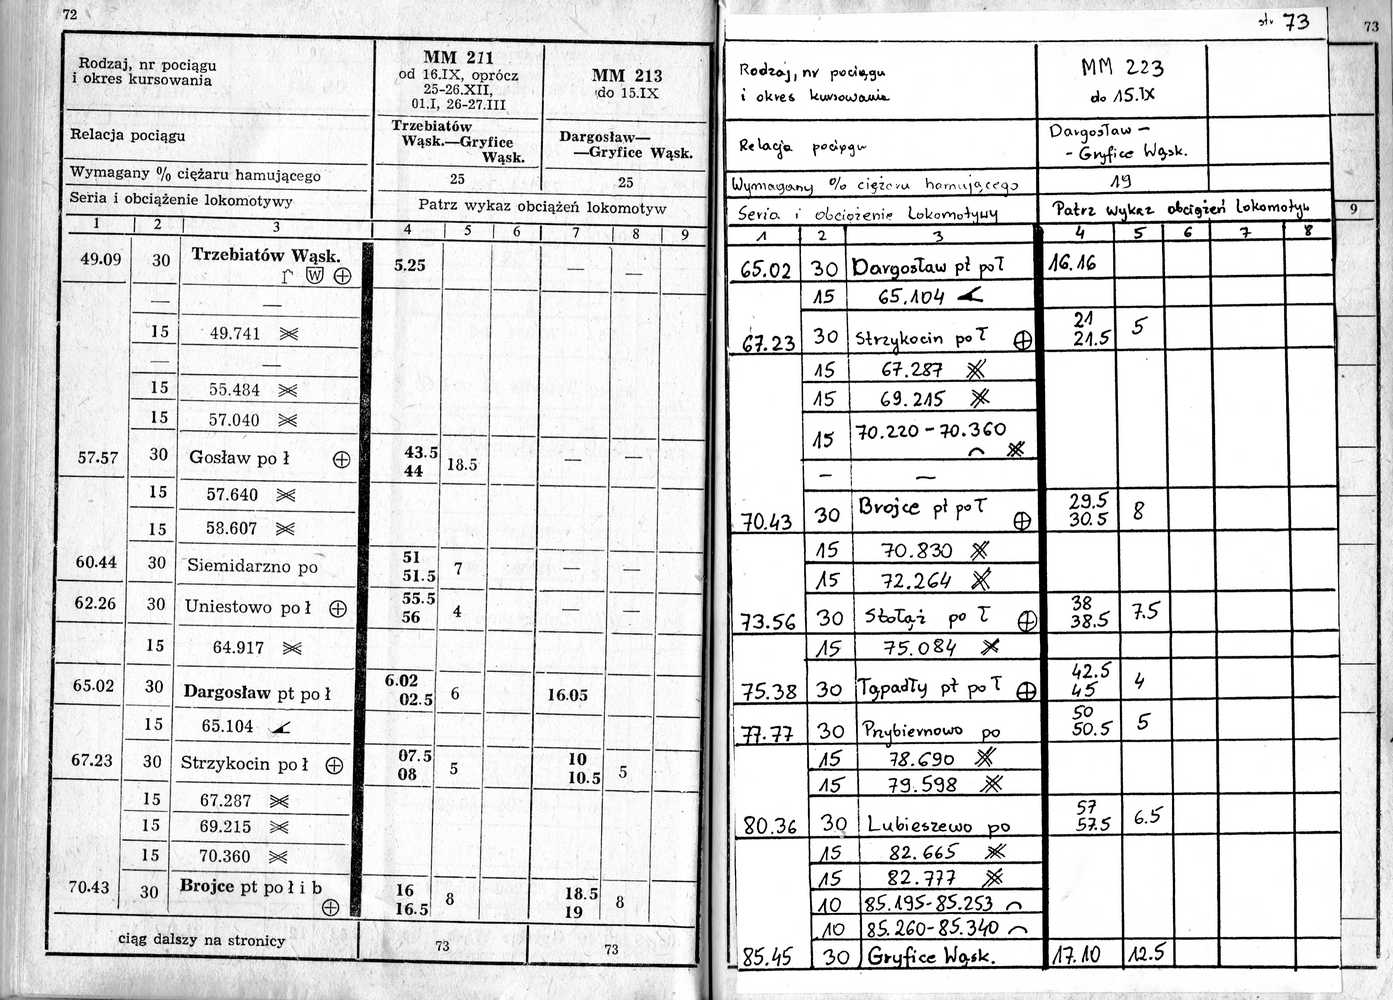 72
Rodzaj, nr pociągu
i okres kursowania
MM 211
od 16.IX, oprócz
25-26.XII,
01.I, 26-27.III
MM 213
do 15.IX
Relacja pociągu
Trzebiatów
Wąsk.—Gryfice
Wąsk.
Dargosław—
—Gryfice Wąsk.
Wymagany % ciężaru hamującego 25 25
Seria i obciążenie lokomotywy Patrz wykaz obciążeń lokomotyw
1 2 3 4 5 6 7 8 9
49.09 30 Trzebiatów Wąsk. 5.25 — —
W
— —
15 49.741
— —
15 55.484
15 57.040
57.57 30 Gosław po ł 43.5 44 18.5 — —
15 57.640
15 58.607
60.44 30 Siemidarzno po 51 51.5 7 — —
62.26 30 Uniestowo po ł 55.5 56 4 — —
15 64.917
65.02 30 Dargosław pt po ł 6.02 02.5 6 16.05
15 65.104
67.23 30 Strzykocin po ł 07.5 08 5 10 10.5 5
15 67.287
15 69.215
15 70.360
70.43 30 Brojce pt po ł i b 16 16.5 8 18.5 19 8
ciąg dalszy na stronicy 73 73
str 73
73
Rodzaj, nr pociągu
i okres kursowania
MM 223
do 15.IX
Relacja pociągu
Dargosław —
- Gryfice Wąsk.
Wymagany % ciężaru hamującego 19
Seria i obciążenie lokomotywy Patrz wykaz obciążeń lokomotyw
9
1 2 3 4 5 6 7 8
65.02 30 Dargosław pt po ł 16.16
15 65.104
67.23 30 Strzykocin po ł 21 21.5 5
15 67.287
15 69.215
15 70.220-70.360
— —
70.43 30 Brojce pt po ł 29.5 30.5 8
15 70.830
15 72.264
73.56 30 Stołąż po ł 38 38.5 7.5
15 75.084
75.38 30 Tąpadły pt po ł 42.5 45 4
77.77 30 Przybiernowo po 50 50.5 5
15 78.690
15 79.598
80.36 30 Lubieszewo po 57 57.5 6.5
15 82.665
15 82.777
10 85.195-85.253
10 85.260-85.340
85.45 30 Gryfice Wąsk. 17.10 12.5